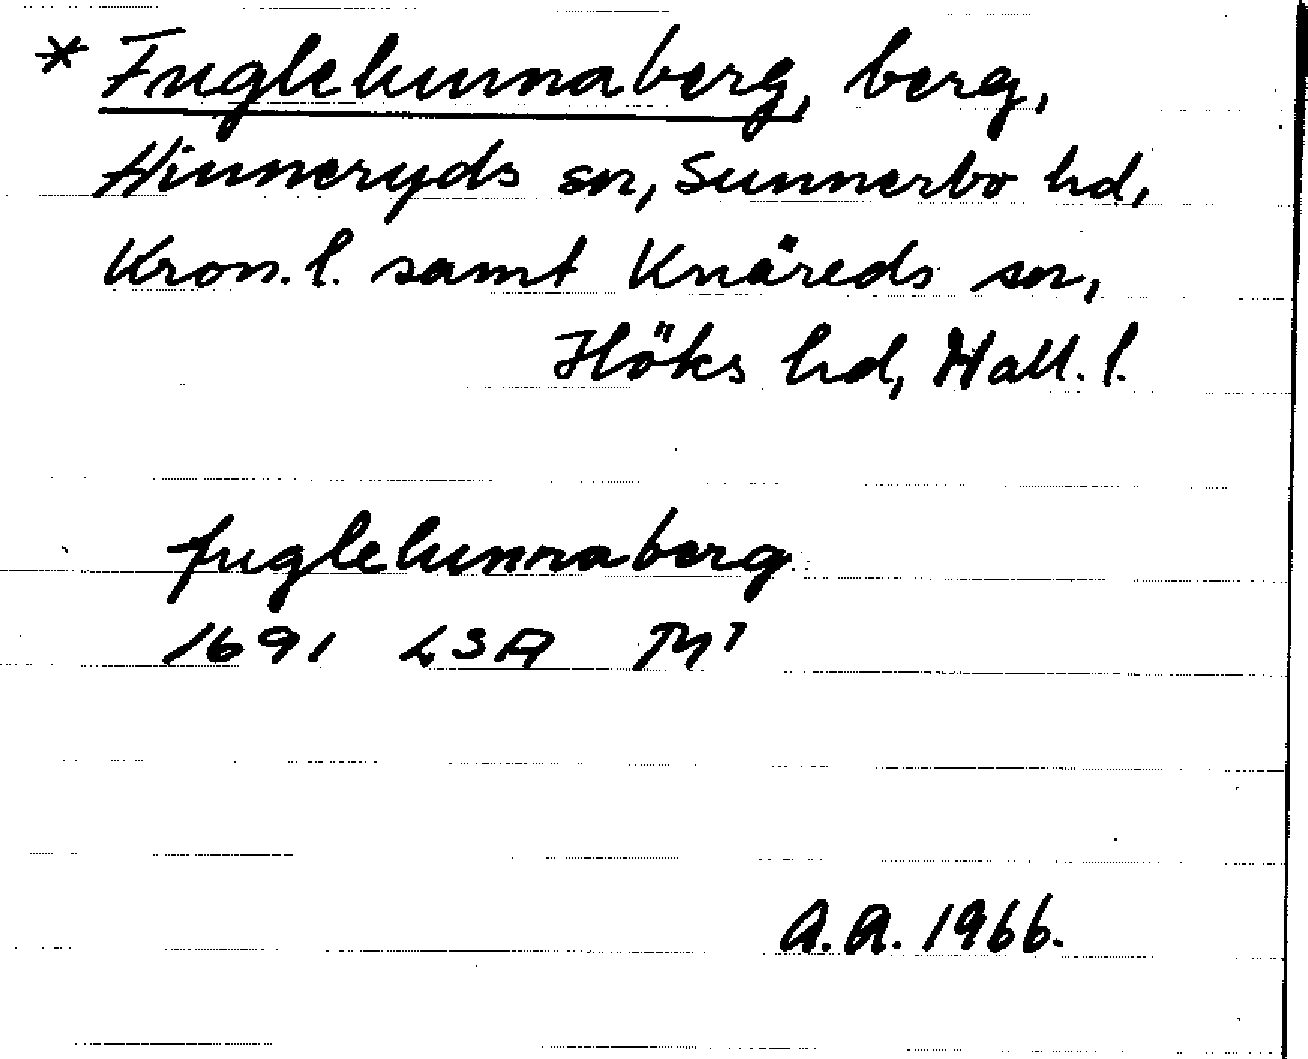 * Fuglehunnaberg, berg,
Hinneryds sn, Sunnerbo hd,
Kron. l. samt Knäreds sn,
Höks hd, Hall. l.
fuglehunnaberg
1691 LSA
A.A. 1966.